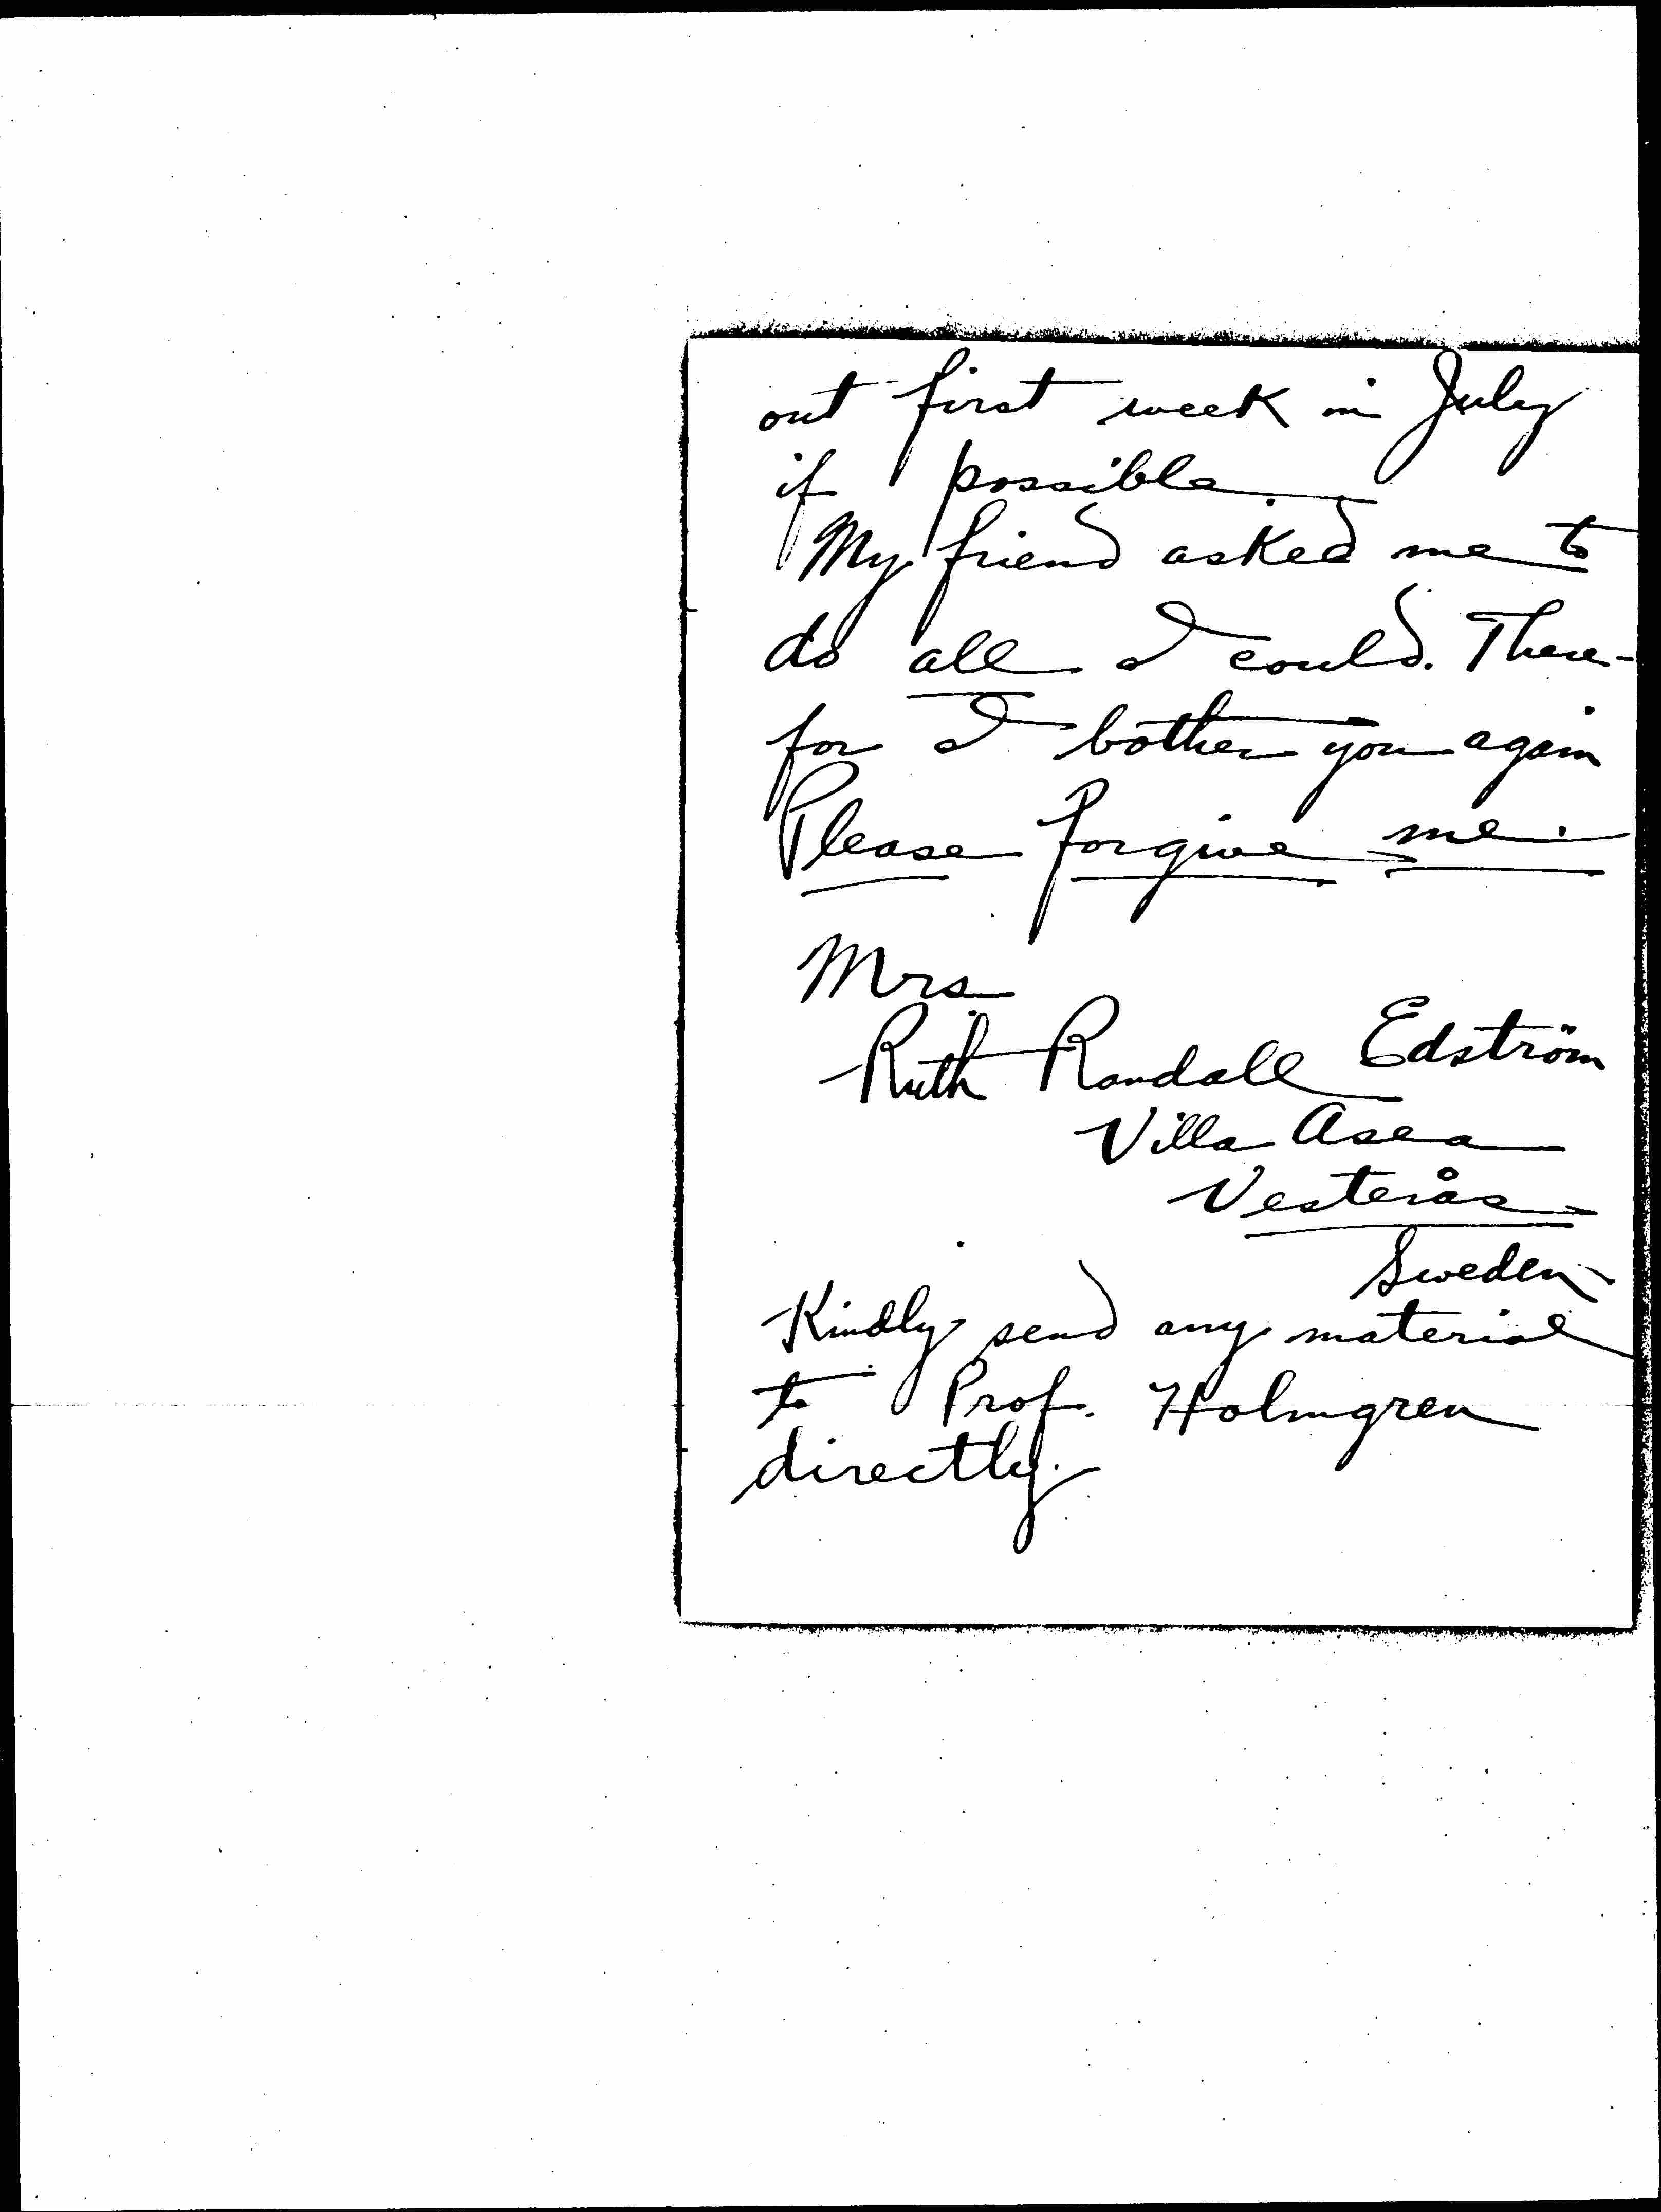 out first week in July
if possible.
My friend asked me to
do all I could. There-
for I bother you again
Please forgive me.
Mrs
Ruth Randall Edström
Villa Asea
Vesterås
Sweden
Kindly send any material
to Prof. Holmgren
directly.